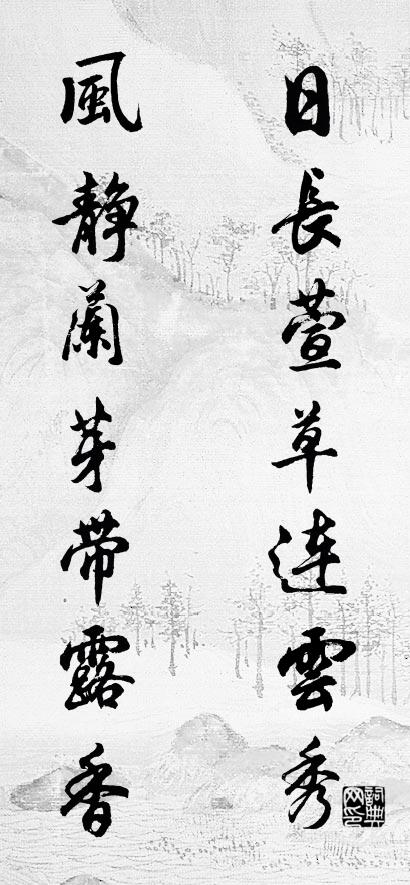 日長萱草連雲秀
風静蘭芽帶露香
詞典网印